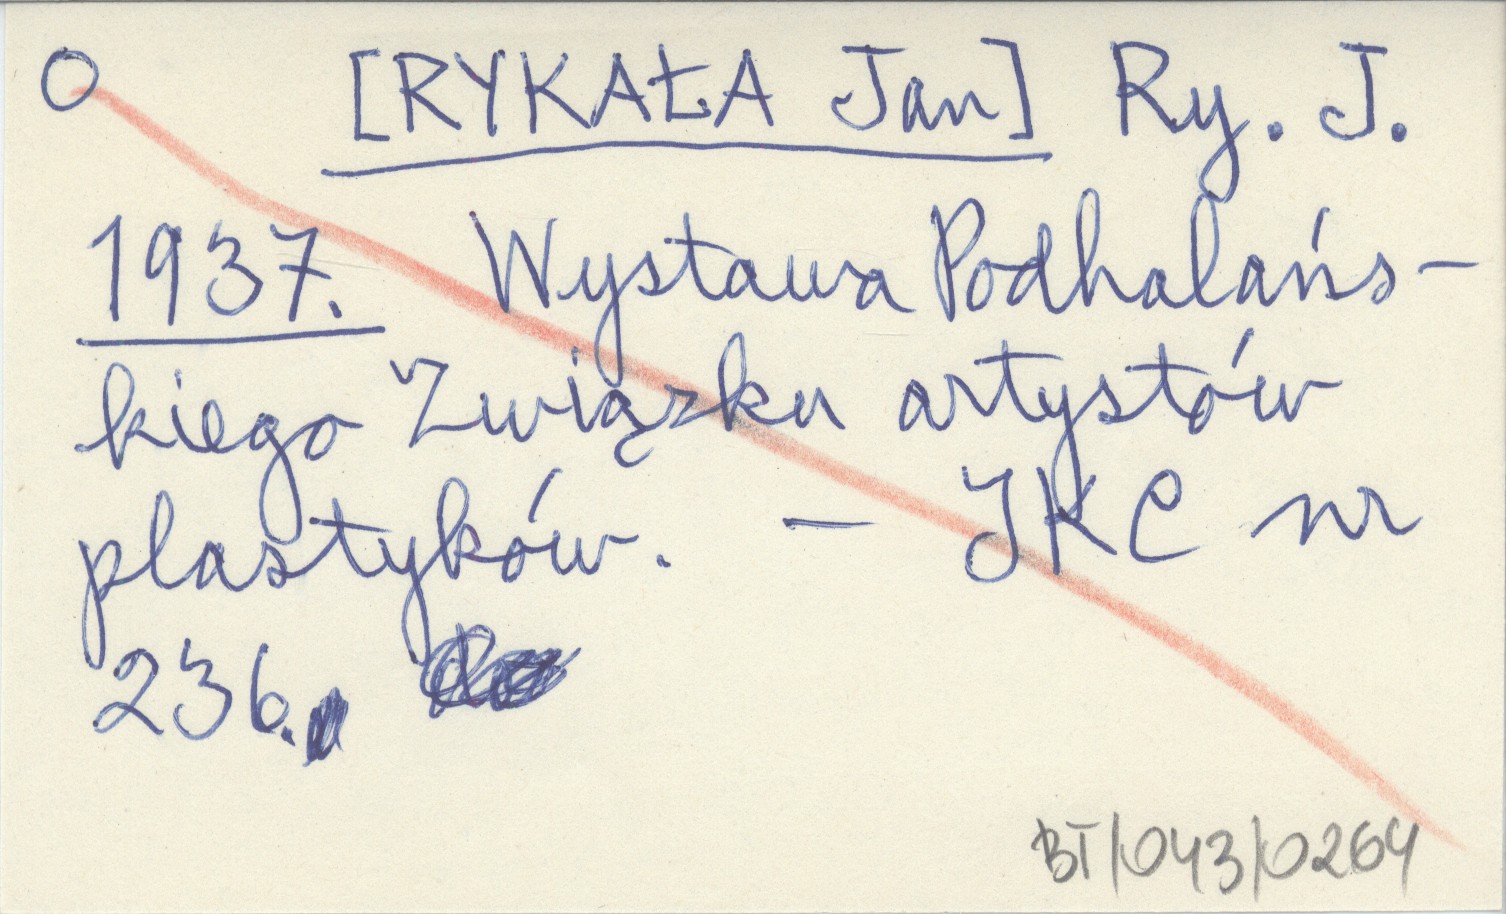 O [RYKAŁA Jan] Ry. J.
1937. Wystawa Podhalańs-
kiego Związku artystów
plastyków. — JKC nr
236.
BT/043/0264